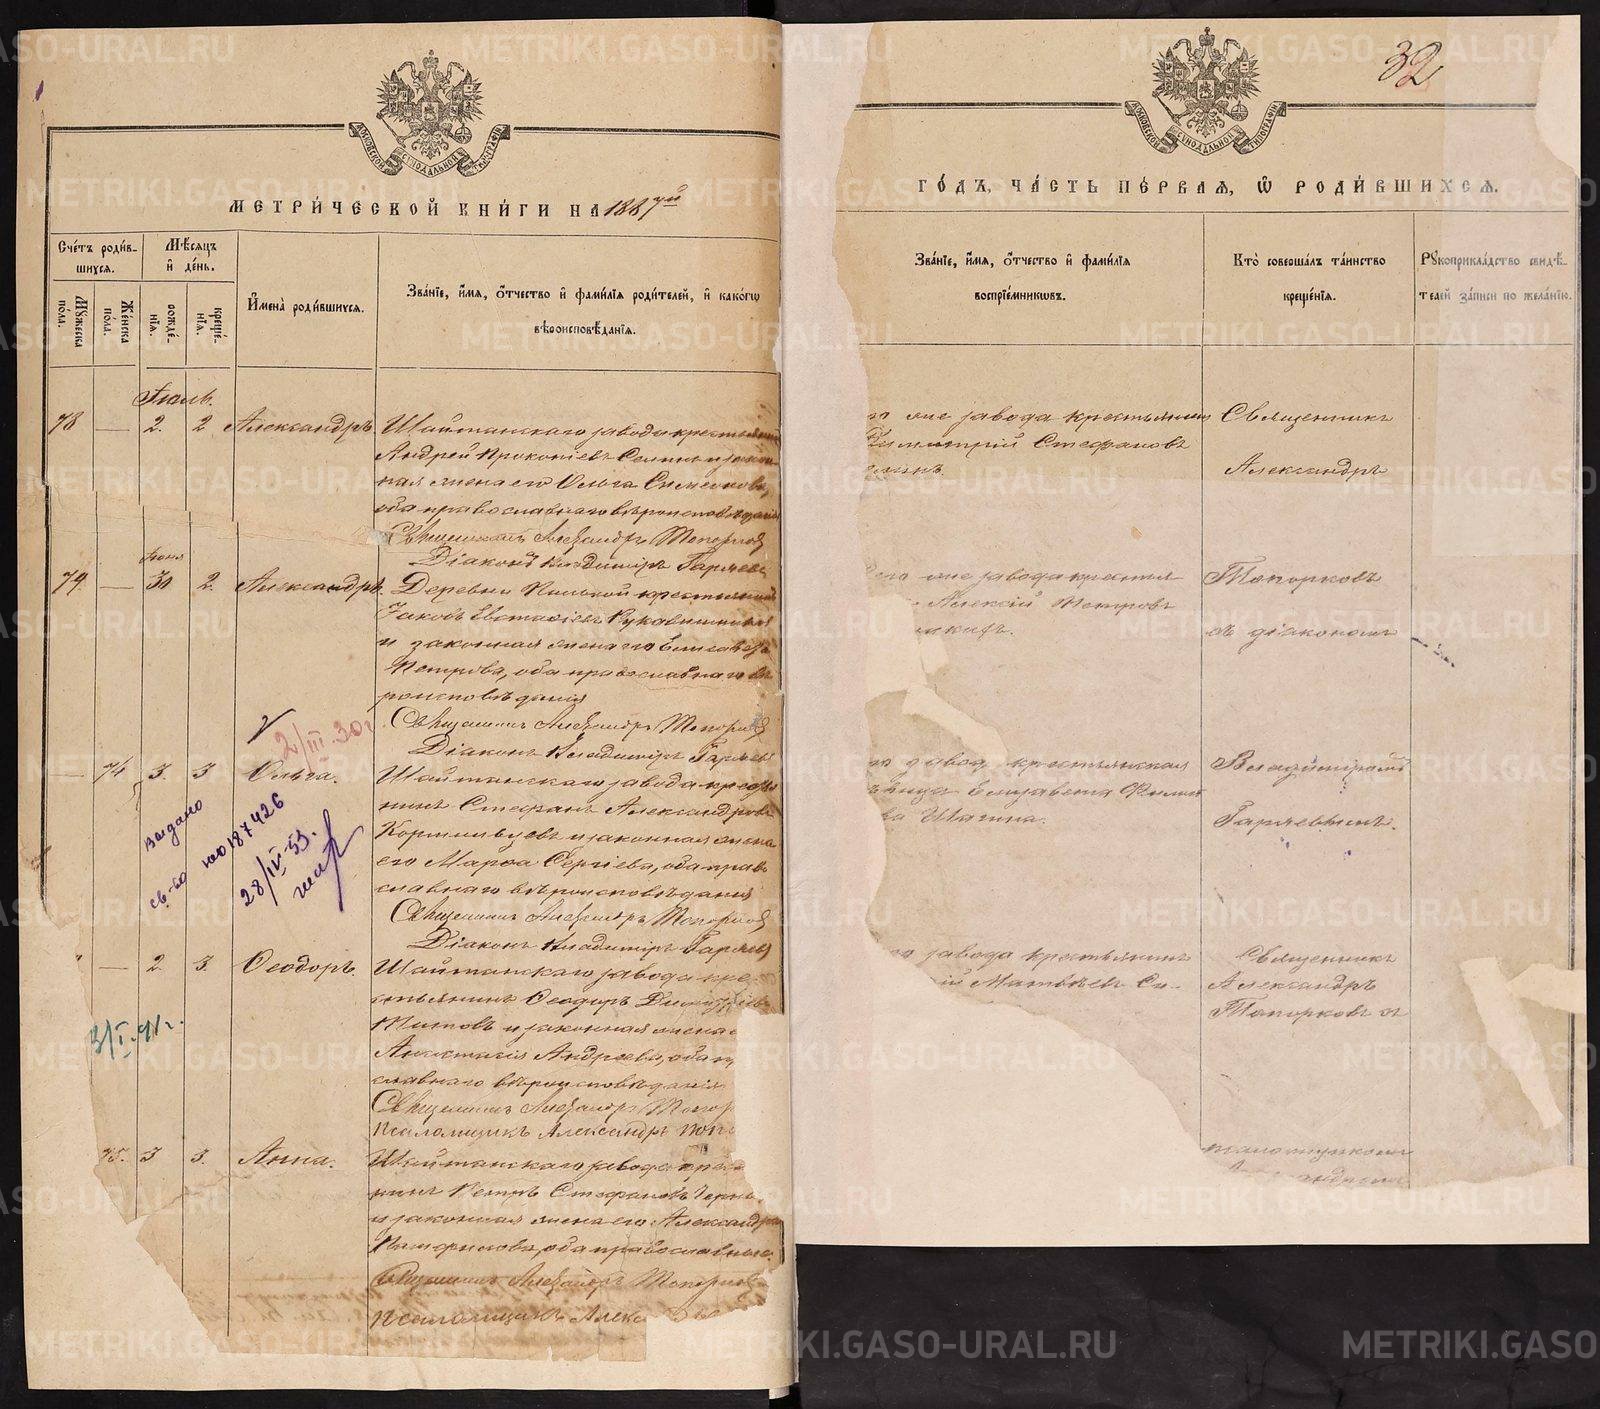 МЕТРИ́ЧЕСКОЙ КНИ́ГИ НА 1887й
Сче́тъ роди́в-
шихся.
Мѣсяцъ
и де́нь.
Му́жеска
по́ла.
Же́нска
по́ла.
рожде́-
нія.
креще́-
нія.
Имена̀ роди́вшихся.
Зва́ніе, и́мя, о́тчество и фами́лія роди́телей, и како́гω
вѣроисповѣ́данія.
Іюль.
78 — 2. 2 Александръ.
Шайтанскаго завода крестьянинъ
Андрей Прокопіевъ и закон-
ная жена его Ольга Симеонова,
оба православнаго вѣроисповѣданія
Священникъ Александръ Топорков
Діаконъ Владиміръ Гаряев
Іюня
79. — 30 2. Александръ.
Деревни крестьянинъ
Іаковъ Евстафіевъ Рукавишниковъ
и законная жена его Елисавета
Петрова, оба православнаго вѣ
роисповѣданія
Священникъ Александръ Топорков
Діаконъ Владиміръ Гаряев
2/III.30г
— 74 3. 3 Ольга.
Шайтанскаго завода крестья
нинъ Стефанъ Александровъ
Кормильцевъ и законная жена
его Марфа Сергіева, оба право
славнаго вѣроисповѣданія
Священникъ Александръ Топорков
Діаконъ Владиміръ Гаряев
выдано
св-во
187426
28/IV-53.
— 2. 3. Ѳеодоръ.
Шайтанскаго завода кре-
стьянинъ Ѳеодоръ
Титовъ и законная жена
Анастасія Андреева, оба п
славнаго вѣроисповѣданія
Священникъ Александръ Топор
Псаломщикъ Александръ Поп
3/I.41г.
75. 3 3. Анна.
Шайтанскаго завода крест
нинъ Петръ Стефановъ Черн
и законная жена его Александра
Памфилова, оба православнаго
Священникъ Александръ Топорков
Псаломщикъ Алекс
32
ГО́ДЪ, ЧА́СТЬ ПЕ́РВАЯ, Ѡ РОДИ́ВШИХСЯ.
Зва́ніе, и́мя, о́тчество и фами́лія
воспріе́мниковъ.
Кто̀ соверша́лъ та́инство
креще́нія.
Рукоприкла́дство свидѣ́-
телей за́писи по жела́нію.
го же завода крестьянинъ
Димитрій Стефановъ
Священникъ
Александръ
го же завода крестья
Алексій Петровъ
Топорковъ
съ діакономъ
завод крестьянская
дѣвица Елизавета
Шагина.
Владиміромъ
Гаряевымъ.
го завода крестьянинъ
Матвѣевъ
Священникъ
Александръ
Топорковъ съ
псаломщикомъ
Александромъ